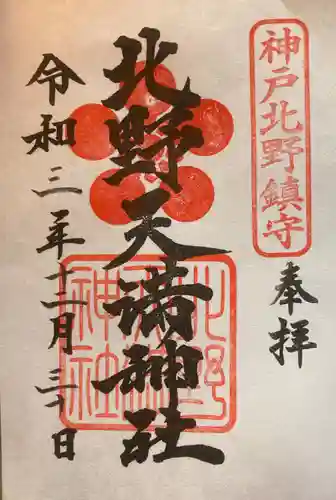 神戸北野鎮守
奉拝
北野天満神社
北野
天満
神社
令和三年十二月三十日